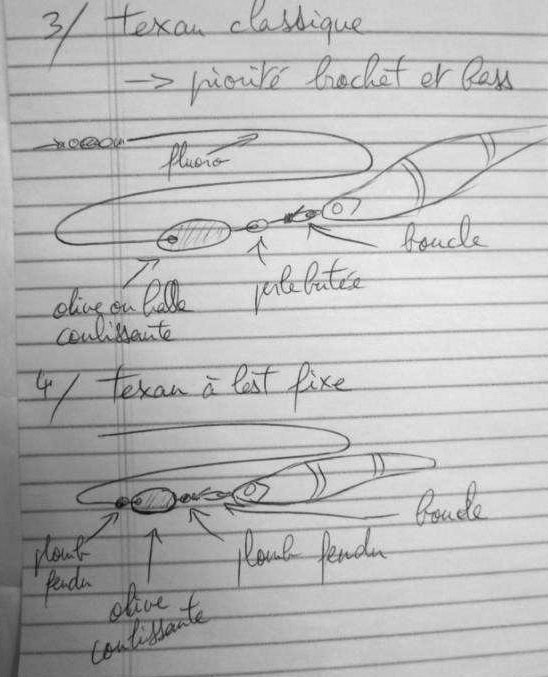 3/ texan classique
-> piorité brochet et bass
fluoro
boucle
perle butée
olive ou balle
coulissante
4/ texan à lest fixe
boucle
plomb
fendu
plomb fendu
olive
coulissante